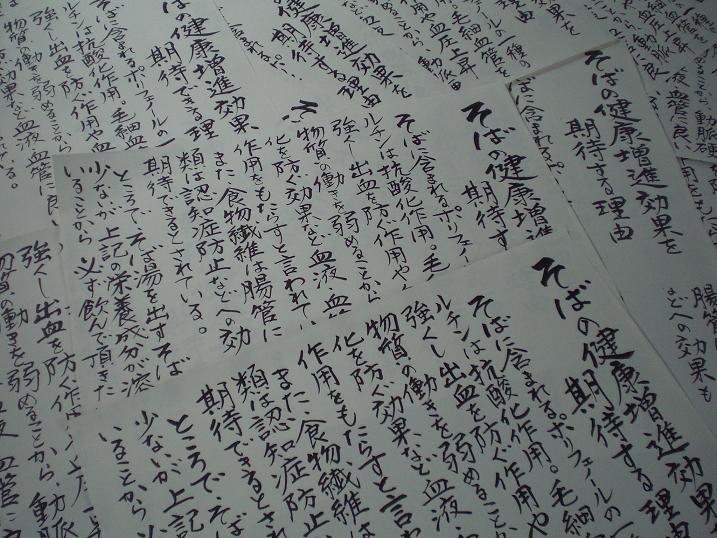 そばの健康増進効果
期待する理由
そばに含まれるポリフェールの一
ルチンは抗酸化作用。毛細
強くし出血を防ぐ作用や
物質の働きを弱めることか
化を防ぐ効果など血液・
作用をもたらすと言わ
また、食物繊維は
類は認知症防止
期待できるとされ
ところで、そば
少ないが上記
いることから
そばの健康増進
期待す
そばに含まれるポリフェー
ルチンは抗酸化作用。毛
強くし出血を防ぐ作用や
物質の働きを弱めることから
化を防ぐ効果など血液血
作用をもたらすと言われてい
また食物繊維は腸管に
類は認知症防止などへの効
期待できるとされている。
ところで、そば湯を出すそば
少ないが上記の栄養成分が溶
いることから必ず飲んで頂きた
そばの健康増進効果を
期待する理由
ばに含まれる
腸管
などへの効果も
健康増進効果を
期待する理由
そばの健康増進効果
期待できる理
そばに含まれるポリフェールの一
ルチンは抗酸化作用。毛細血
強くし出血を防ぐ作用や血
物質の働きを弱めることから
効果など血液血管に良い
強くし出血を防ぐ作
物質の働きを弱めることから、動脈